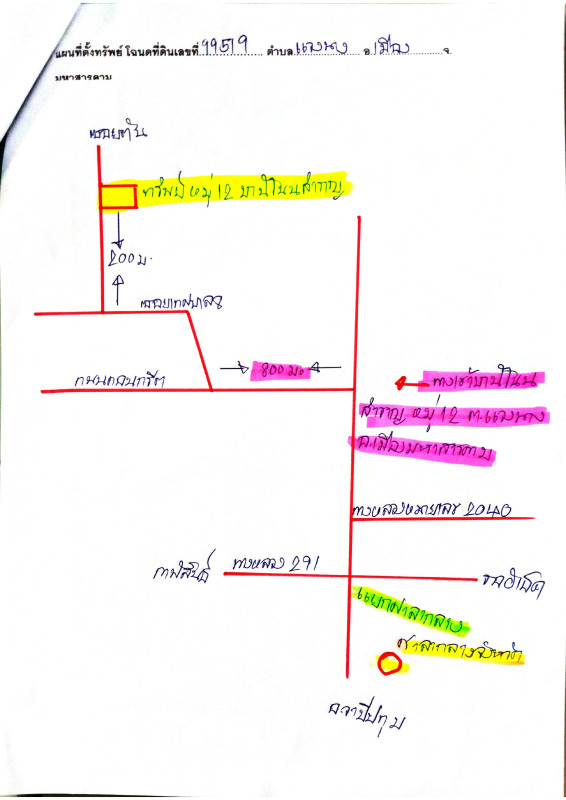 แผนที่ตั้งทรัพย์ โฉนดที่ดินเลขที่ 99519 ตำบล แวงน่าง อ.เมือง จ.
มหาสารคาม
ซอยตัน
ทรัพย์ หมู่ 12 บ้านโนนสำราญ
200 ม.
ซอยเทศบาล
800 ม.
ถนนคอนกรีต
ทางเข้าบ้านโนน
สำราญ หมู่ 12 ต.แวงน่าง
อ.เมืองมหาสารคาม
ทางหลวงหมายเลข 2040
ทางหลวง 291
กาฬสินธุ์
แยกศาลากลาง
ศาลากลางจังหวัด
อ.วาปีปทุม